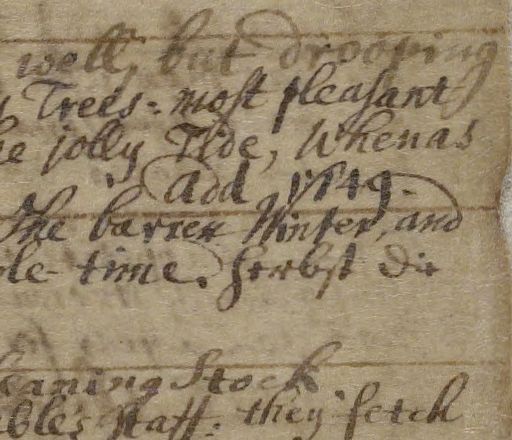 well, but drooping
Trees: most pleasant
jolly Tide, Whenas
add 1749.
The barren Winter, and
time. Herbst die
Stock
staff: they fetch